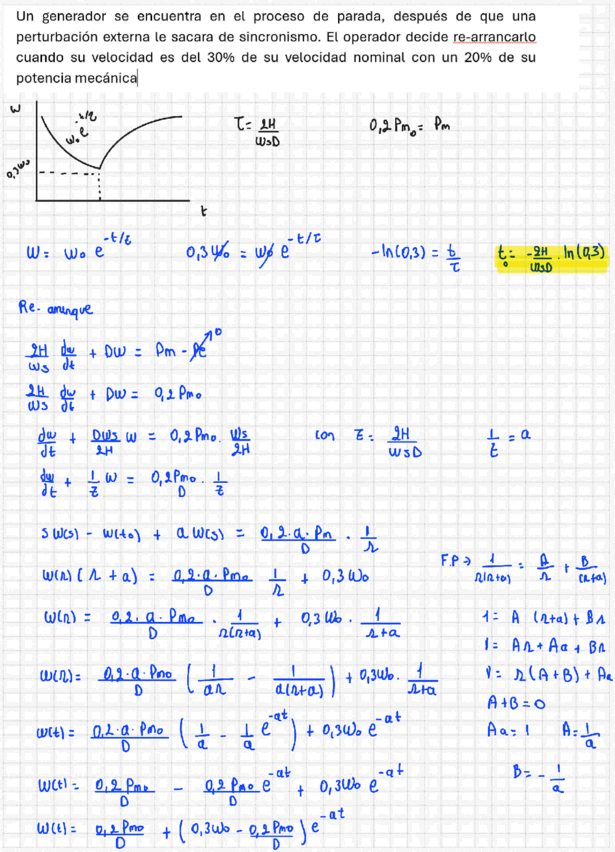 Un generador se encuentra en el proceso de parada, después de que una
perturbación externa le sacara de sincronismo. El operador decide re-arrancarlo
cuando su velocidad es del 30% de su velocidad nominal con un 20% de su
potencia mecánica
w
w₀e^(-t/τ)
0,3w₀
t
τ = 2H/(wsD)
0,2Pm₀ = Pm
w = w₀ e^(-t/τ)
0,3w₀ = w₀ e^(-t/τ)
-ln(0,3) = t/τ
t₀ = -2H/(wsD) . ln(0,3)
Re-arranque
2H/ws dw/dt + Dw = Pm - Pe → 0
2H/ws dw/dt + Dw = 0,2Pm₀
dw/dt + Dws/2H w = 0,2Pm₀ . ws/2H
con τ = 2H/(wsD)
1/τ = a
dw/dt + 1/τ w = 0,2Pm₀/D . 1/τ
s w(s) - w(t₀) + a w(s) = 0,2·a·Pm/D . 1/s
w(s) (s + a) = 0,2·a·Pm₀/D 1/s + 0,3w₀
w(s) = 0,2·a·Pm₀/D . 1/(s(s+a)) + 0,3w₀ . 1/(s+a)
w(s) = 0,2·a·Pm₀/D (1/(as) - 1/(a(s+a))) + 0,3w₀ . 1/(s+a)
w(t) = 0,2·a·Pm₀/D (1/a - 1/a e^(-at)) + 0,3w₀ e^(-at)
w(t) = 0,2Pm₀/D - 0,2Pm₀/D e^(-at) + 0,3w₀ e^(-at)
w(t) = 0,2Pm₀/D + (0,3w₀ - 0,2Pm₀/D) e^(-at)
F.P → 1/(s(s+a)) = A/s + B/(s+a)
1 = A (s+a) + Bs
1 = As + Aa + Bs
1 = s(A+B) + Aa
A+B=0
Aa = 1
A = 1/a
B = -1/a